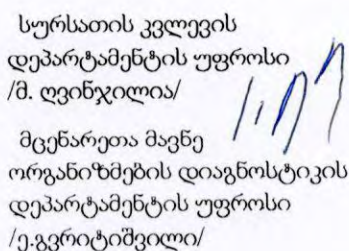 სურსათის კვლევის
დეპარტამენტის უფროსი
/მ. ღვინჯილია/
მცენარეთა მავნე
ორგანიზმების დიაგნოსტიკის
დეპარტამენტის უფროსი
/ე.გვრიტიშვილი/